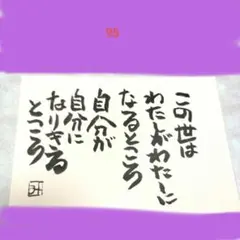 この世は
わたしがわたしに
なるところ
自分が
自分に
なりきる
ところ